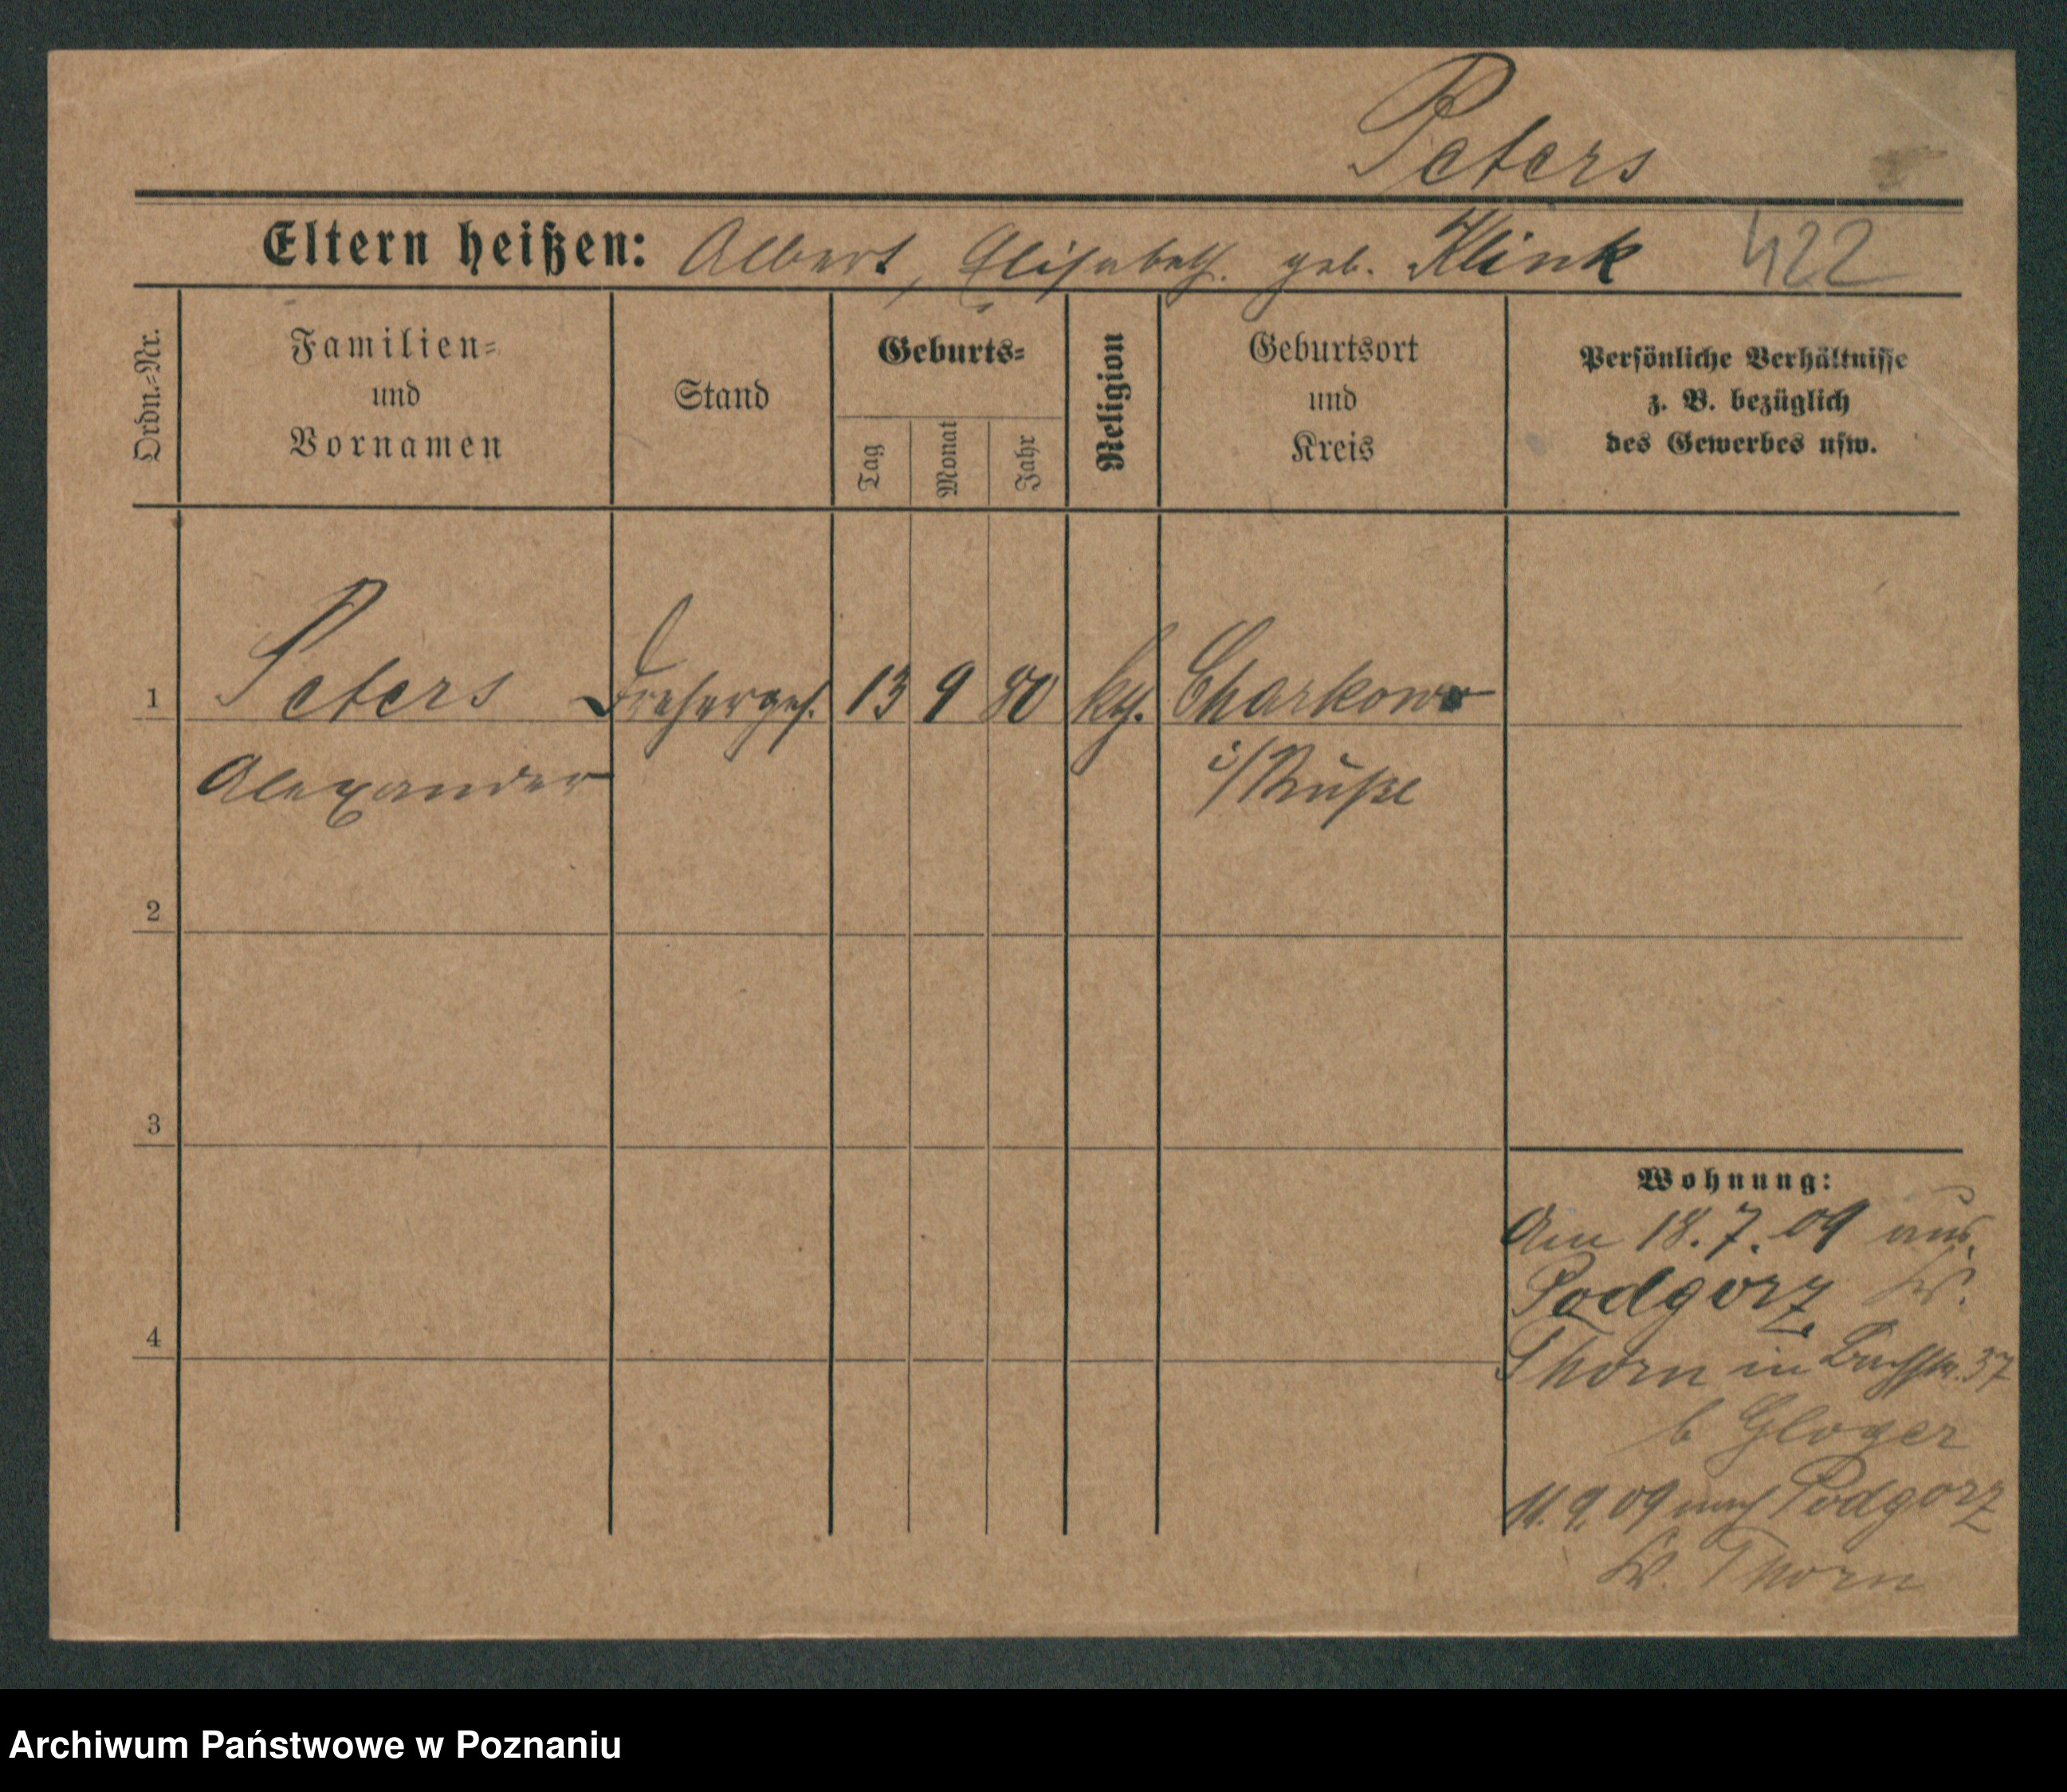 Peters
Eltern heißen: Albert, Elisabeth geb. Klink 422
Ordn.-Nr.
Familien-
und
Vornamen
Stand
Geburts-
Tag
Monat
Jahr
Religion
Geburtsort
und
Kreis
Persönliche Verhältnisse
z. B. bezüglich
des Gewerbes usw.
1 Peters Dreherges. 13 9 80 kth. Charkow
Alexander i/Ruße
2
3
4
Wohnung:
Am 18.7.09 aus
Podgorz Kr.
Thorn in Bachstr. 37
b Gloger
11.9.09 nach Podgorz
Kr. Thorn
Archiwum Państwowe w Poznaniu